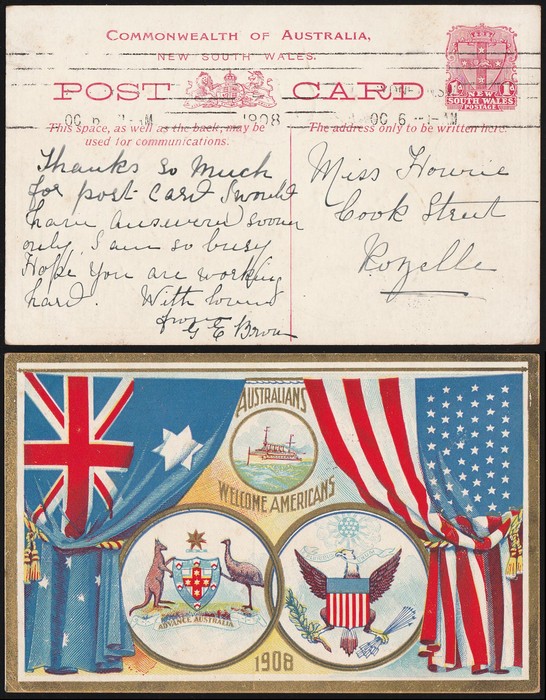 COMMONWEALTH OF AUSTRALIA,
NEW SOUTH WALES.
POST CARD
1d. NEW SOUTH WALES 1d.
POSTAGE
OC 6 - AM 1908 OC 6 - 1 - AM
This space, as well as the back, may be
used for communications.
The address only to be written here.
Thanks so much
for post card I would
have answered sooner
only I am so busy
Hope you are working
hard. With love
from
G E Brow
Miss Howrie
Cook Street
Rozelle
AUSTRALIANS
WELCOME AMERICANS
ADVANCE AUSTRALIA
1908